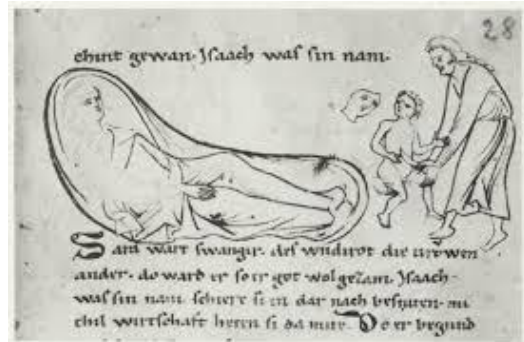 28
chint gewan. Jsaach was sin nam.
Sara wart swangir. des wndirot die vrowen
ander. do ward er so er got wol gezam. Jsaach
was sin nam. schiere si in dar nach besniten. mi
chil wirtschaft heten si da mite. Do er begund